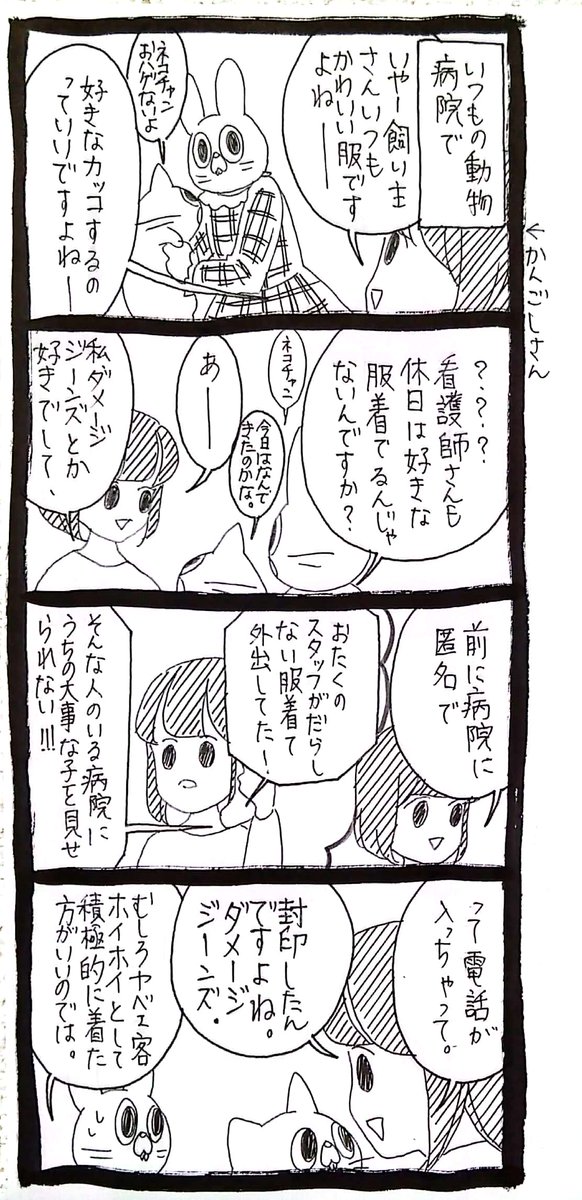 いつもの動物
病院で
いやー飼い主
さんいつも
かわいい服です
よねーー
ネコチャン
おハゲないよ
好きなカッコするの
っていいですよねー
←かんごしさん
？？？？
看護師さんも
休日は好きな
服着てるんじゃ
ないんですか？
ネコチャン
今日はなんで
きたのかな。
あー
私ダメージ
ジーンズとか
好きでして、
前に病院に
匿名で
おたくの
スタッフがだらし
ない服着て
外出してた！
そんな人のいる病院に
うちの大事な子を見せ
られない!!!
って電話が
入っちゃって。
封印したん
ですよね。
ダメージ
ジーンズ.
むしろヤベェ客
ホイホイとして
積極的に着た
方がいいのでは。